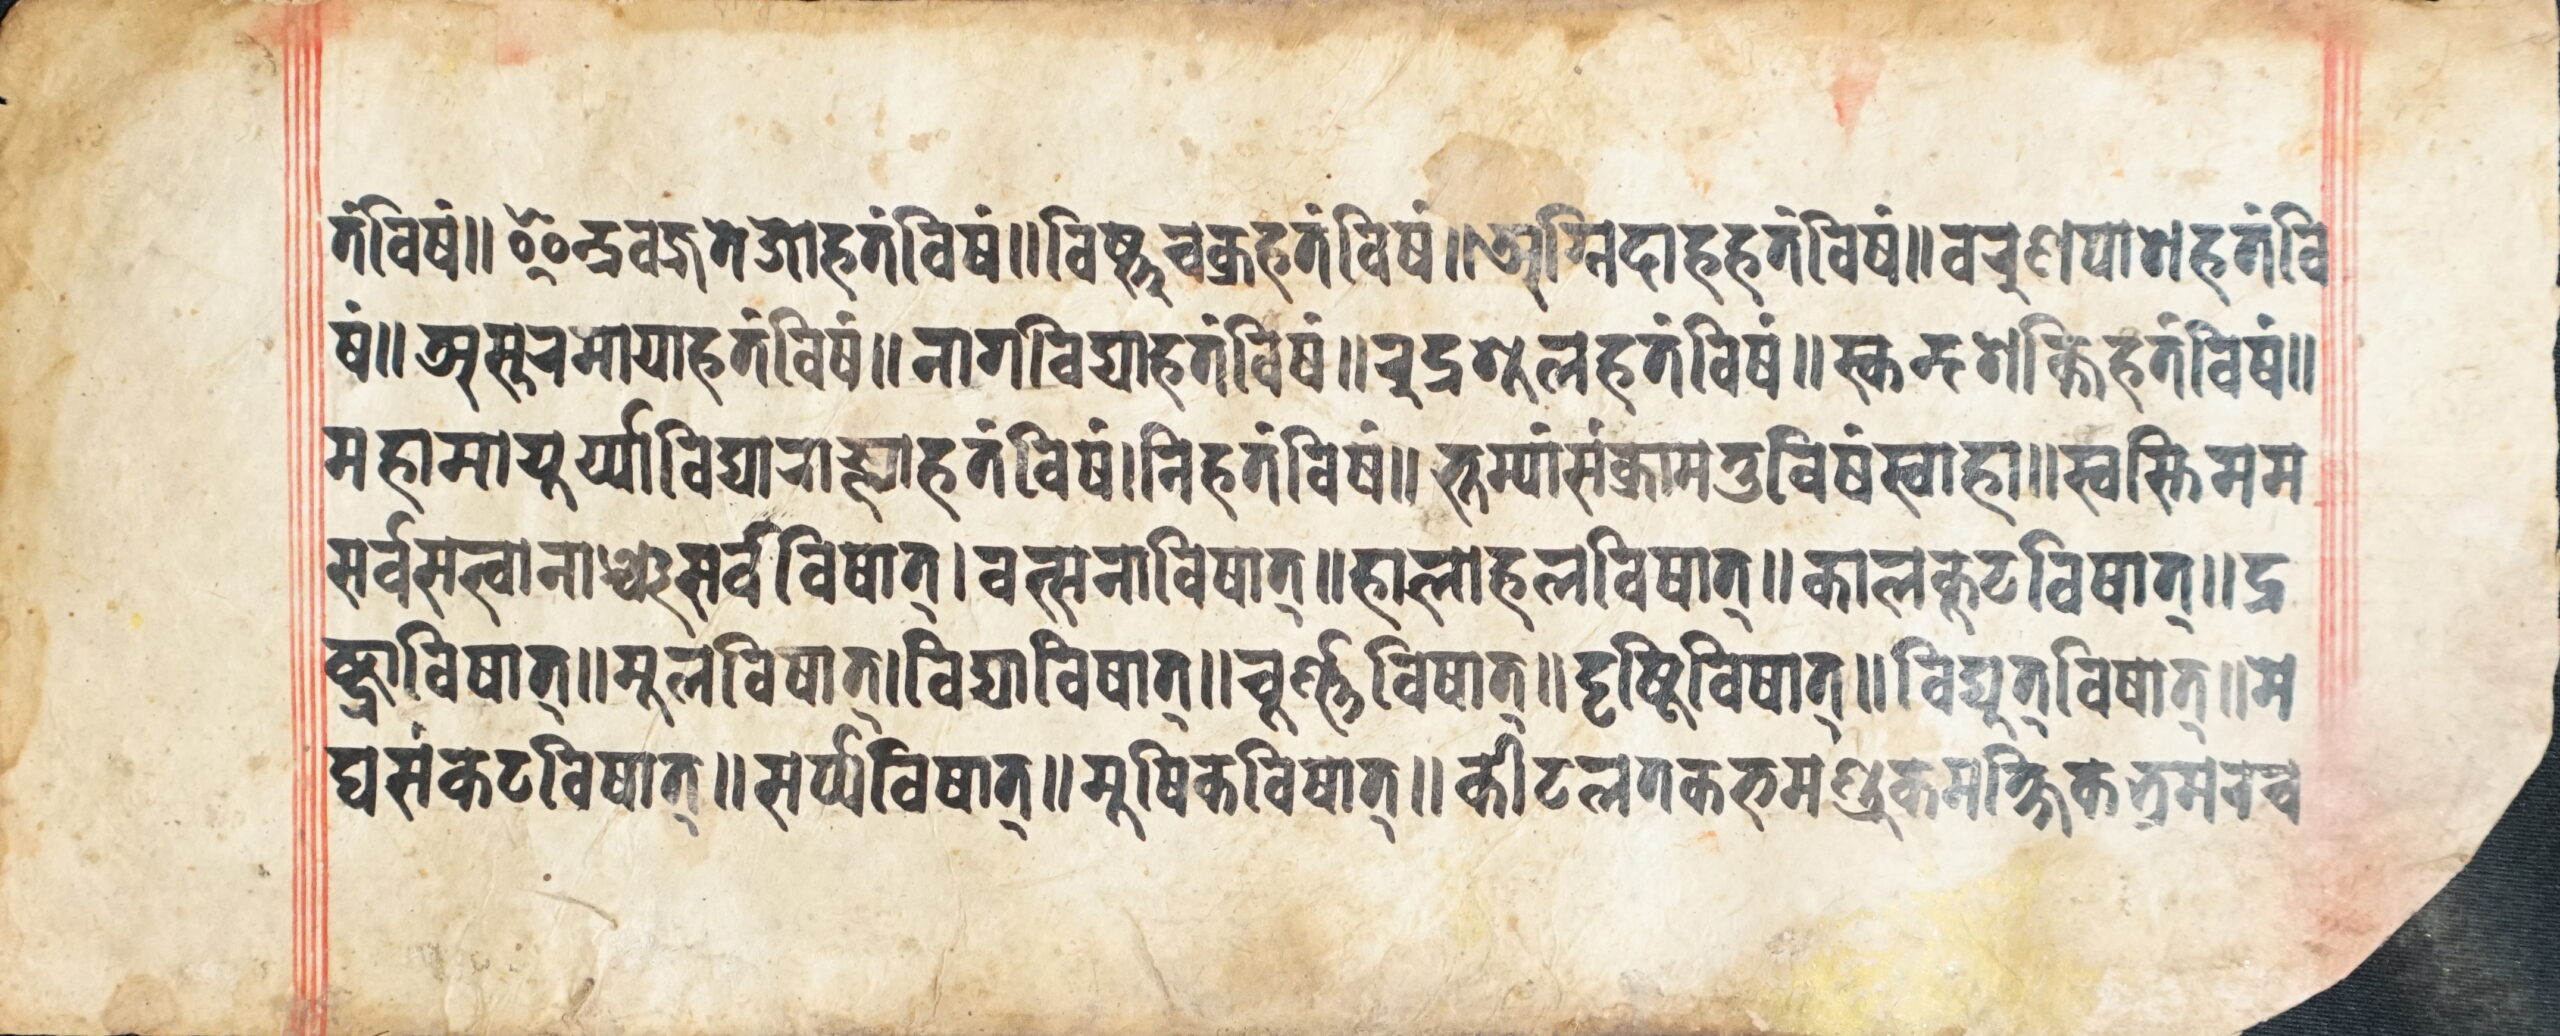 तंविषं॥इन्द्रवज्रतेजोहतंविषं॥विष्णुचक्रहतंविषं॥अग्निदाहहतंविषं॥वरुणपाशहतंवि
षं॥असुरमायाहतंविषं॥नागविद्याहतंविषं॥रुद्रशूलहतंविषं॥स्कन्दशक्तिहतंविषं॥
महामायुर्य्याविद्याराज्ञाहतंविषं।निहतंविषं॥भूम्यांसंक्रामतुविषंस्वाहा॥स्वस्तिमम
सर्वसत्त्वानाञ्चसर्वविषात्।वत्सनाविषात्॥हालाहलविषात्॥कालकूटविषात्॥द्र
ष्ट्राविषात्॥मूलविषात्।विद्याविषात्॥चूर्ण्णविषात्॥दृष्टिविषात्॥विद्युत्विषात्॥मे
घसंकटविषात्॥सर्प्पविषात्॥मुषिकविषात्॥कीटलूतकरुमण्डुकमक्षिकभ्रमरच